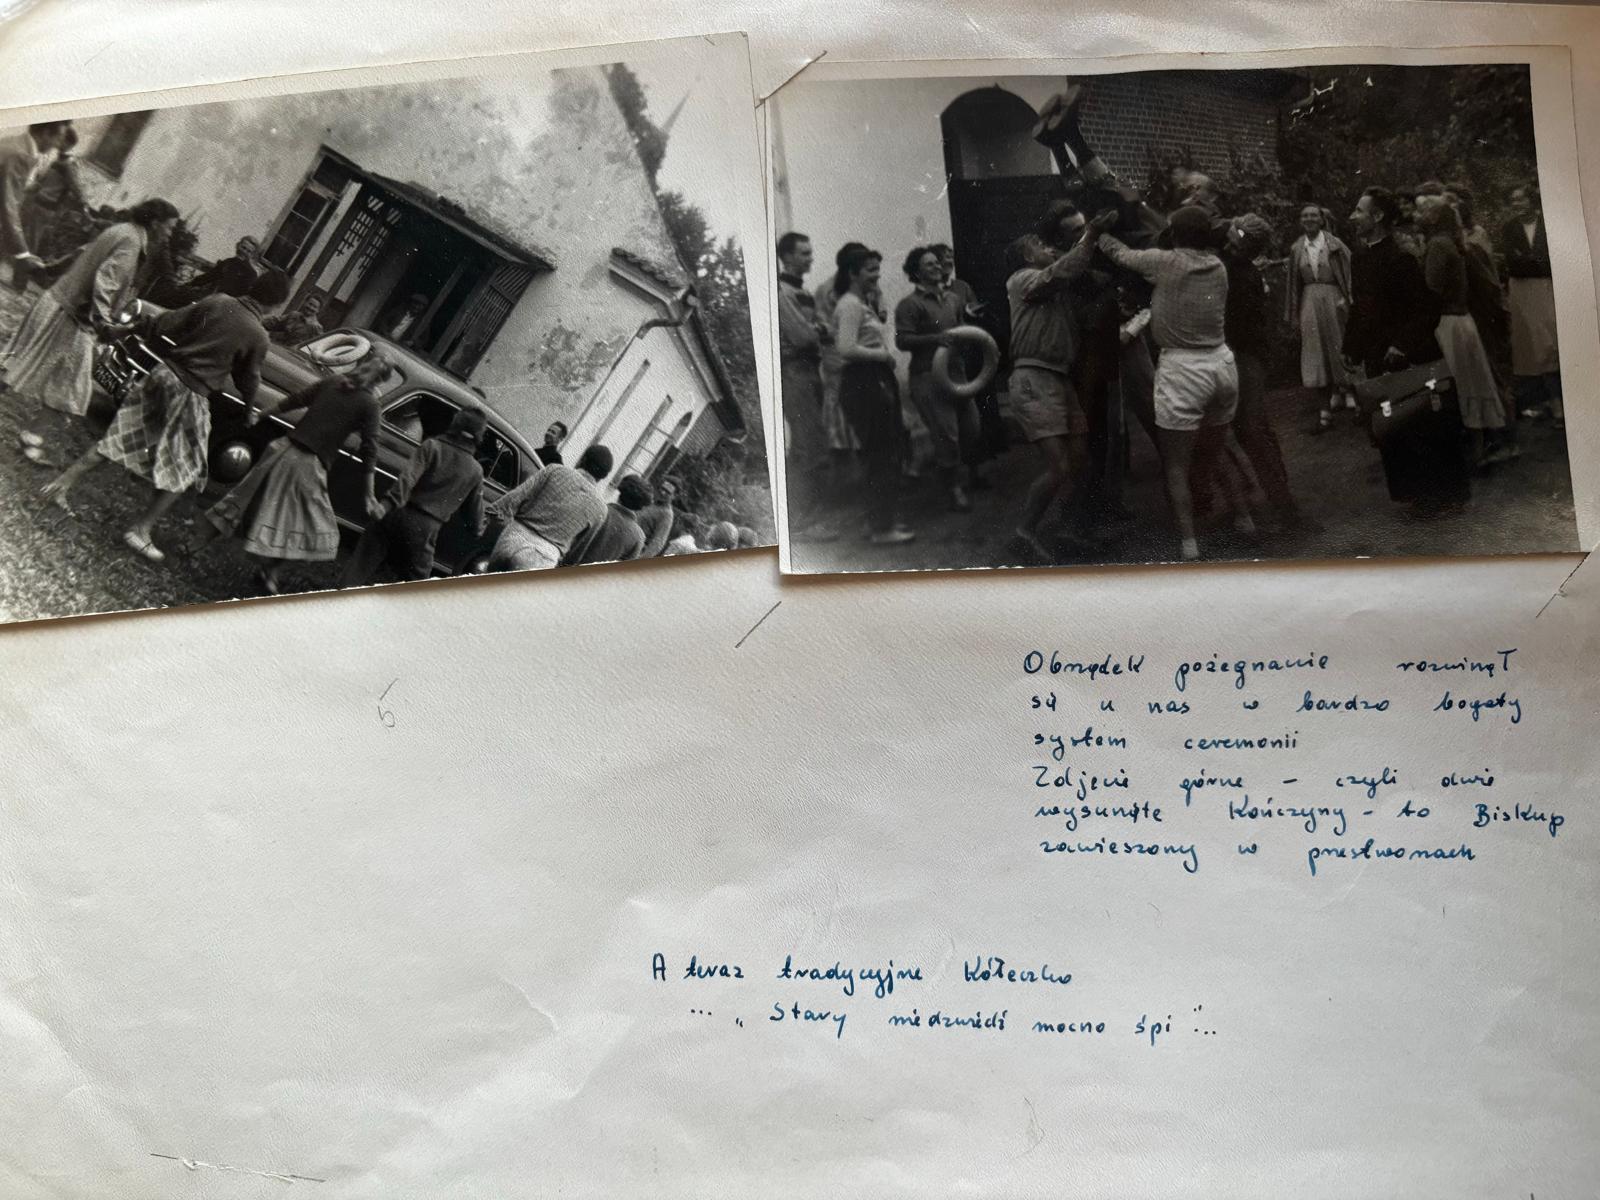 5
Obrzędek pożegnanie rozwinął
się u nas w bardzo bogaty
system ceremonii
Zdjęcie górne – czyli dwie
wysunięte Kończyny – to Biskup
zawieszony w przestworzach
A teraz tradycyjne Kółeczko
... „Stary niedzwiedź mocno śpi"...